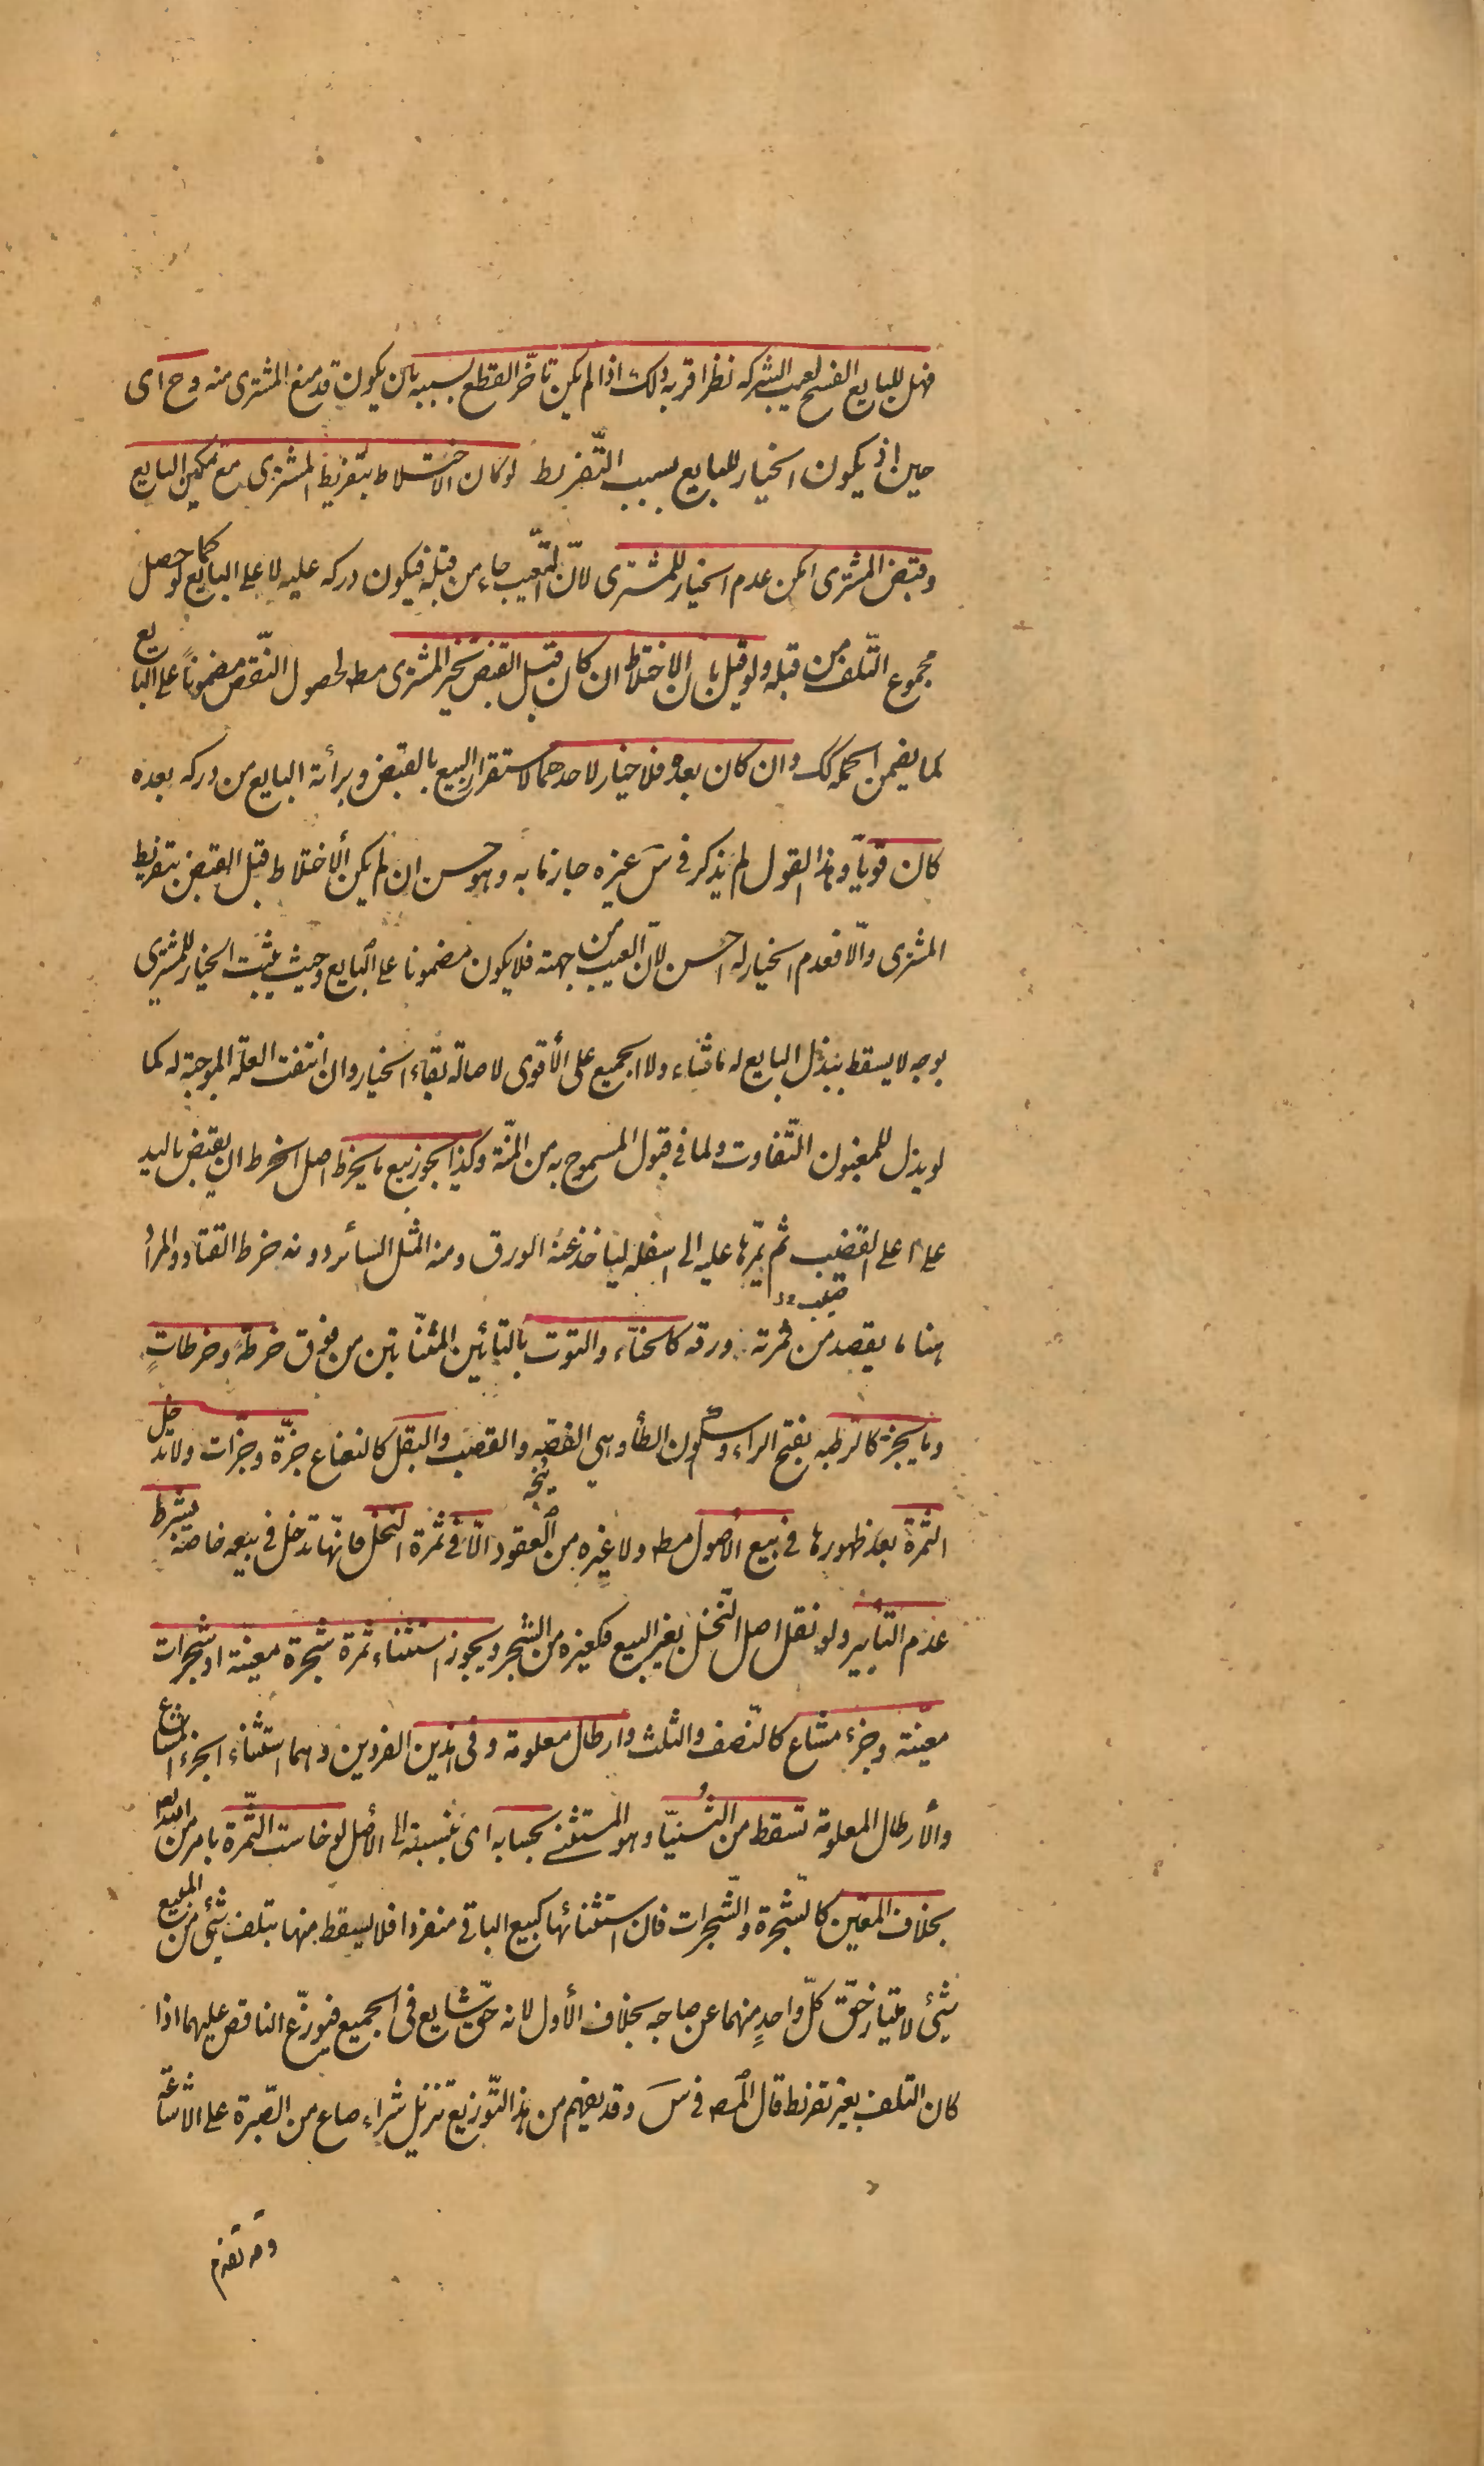 فهل للبايع الفسخ لعيب الشركه نظر اقربه ذلك اذا لم يكن تاخّر القطع بسببه بان يكون قد منع المشترى منه وح اى
حين اذ يكون الخيار للبايع بسبب التّفريط لو كان الاختلاط بتفريط المشترى مع تمكين البايع
وقبض المشترى امكن عدم الخيار للمشترى لانّ التّعيب جاء من قبله فيكون دركه عليه لا على البايع كما لو حصل
مجموع التّلف من قبله ولو قيل بان الاختلاط ان كان قبل القبض تخير المشترى مط لحصول النّقص مضموناً على البايع
كما يضمن الجملة كك وان كان بعده فلا خيار لاحدهما لاستقرار البيع بالقبض وبرأئة البايع من دركه بعده
كان قوياً وهذا القول لم يذكر فى سَ غيره جازما به وهو حسن ان لم يكن الأختلاط قبل القبض بتفريط
المشترى والّا فعدم الخيار له احسن لانّ العيب من جهته فلا يكون مضمونا على البايع وحيث يثبت الخيار للمشترى
بوجه لا يسقط ببذل البايع له ما شاء ولا الجميع على الأقوى لاصالة بقاء الخيار وان انتفت العلّة الموجبة له كما
لو بذل للمغبون التّفاوت ولما فى قبول المسموح به من المنّة وكذا يجوز بيع ما يخرط اصل الخرط ان يقبض باليد
على اعلى القضيب ثم يمّرها عليه الى اسفله ليأخذ عنه الورق ومنه المثل السائر دونه خرط القتاد والمرأد
هنا ما يقصد من ثمرته ورقه كالحنّاء والتوت بالتائين المثنّاتين من فوق خرطةً وخرطاتٍ
وما يجزّ كالرطبه بفتح الراء وسكون الطأ وهى الفصّه والقضب والبقل كالنعناع جزّة وجزّات ولا تدخل
الثمرة بعد ظهورها فى بيع الأصول مط ولا غيره من العقود الّا فى ثمرة النخل فانّها تدخل فى بيعه خاصّة بشرط
عدم التأبير ولو نقل اصل النّخل بغير البيع فكغيره من الشجر ويجوز استثناء ثمرة شجرة معيّنة او شجرات
معيّنة وجزء مشاع كالنّصف والثلث وارطال معلومة وفى هذين الفردين وهما استثناء الجزء المشاع
والأرطال المعلومة تسقط من الثُنيّا وهو المستثنى بحسابه اى بنسبته الى الأصل لو خاست الثّمرة بامر من الله
بخلاف المعّين كالشّجرة والشّجرات فان استثنائها كبيع الباقى منفردا فلا يسقط منها بتلف شئ من المبيع
شئ لامتياز حقّ كلّ واحدٍ منهما عن صاحبه بخلاف الأول لانه حقّ شايع فى الجميع فيوزّع الناقص عليهما اذا
كان التلف بغير تفريط قال المصه فى سَ وقد يفهم من هذا التّوزيع تنزيل شراء صاع من الصّبرة على الاشاعة
وقد تقدم